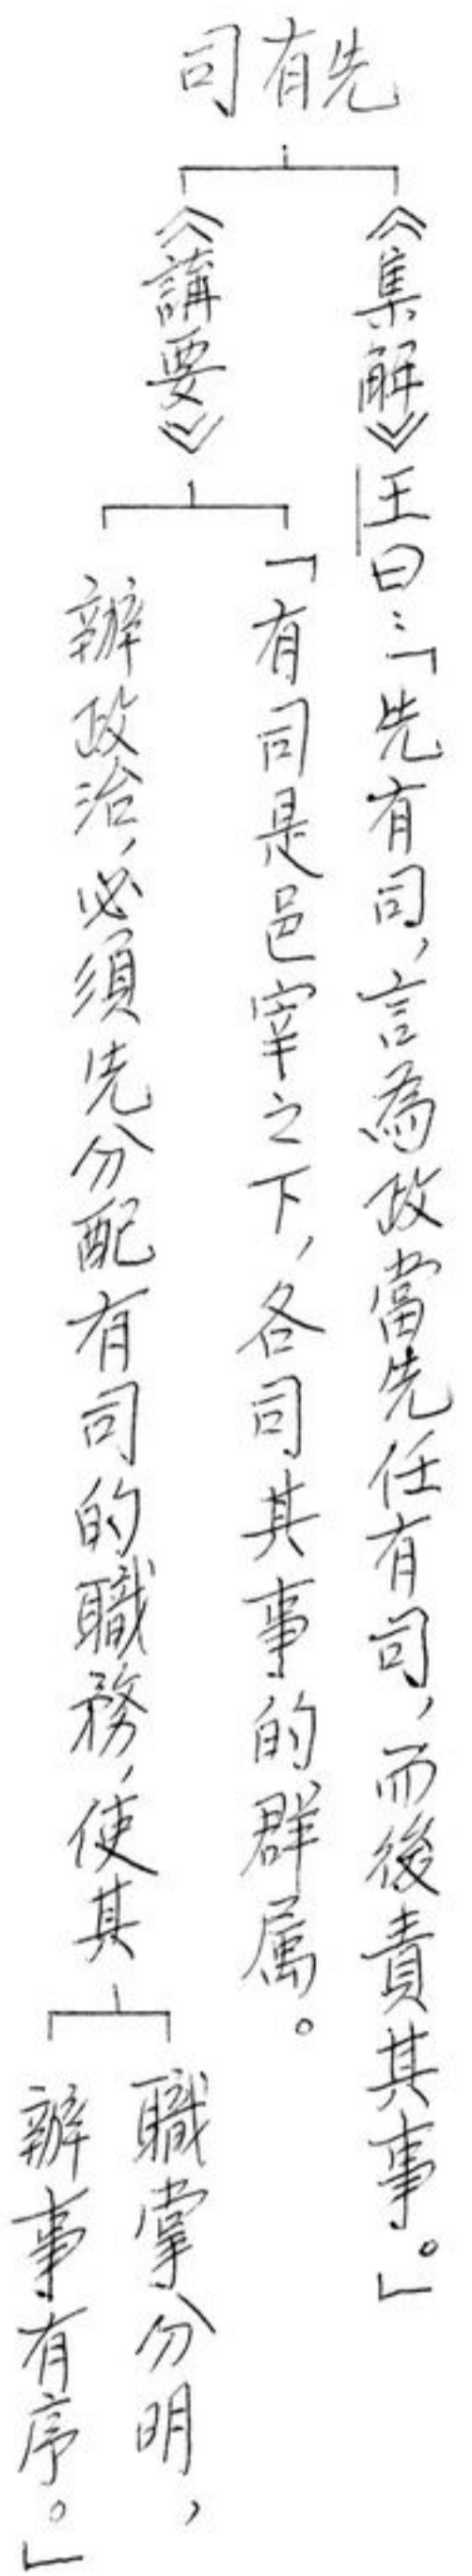 先有司
《集解》王曰：「先有司，言為政當先任有司，而後責其事。」
《講要》
「有司是邑宰之下，各司其事的群属。
辦政治，必須先分配有司的職務，使其
職掌分明，
辦事有序。」